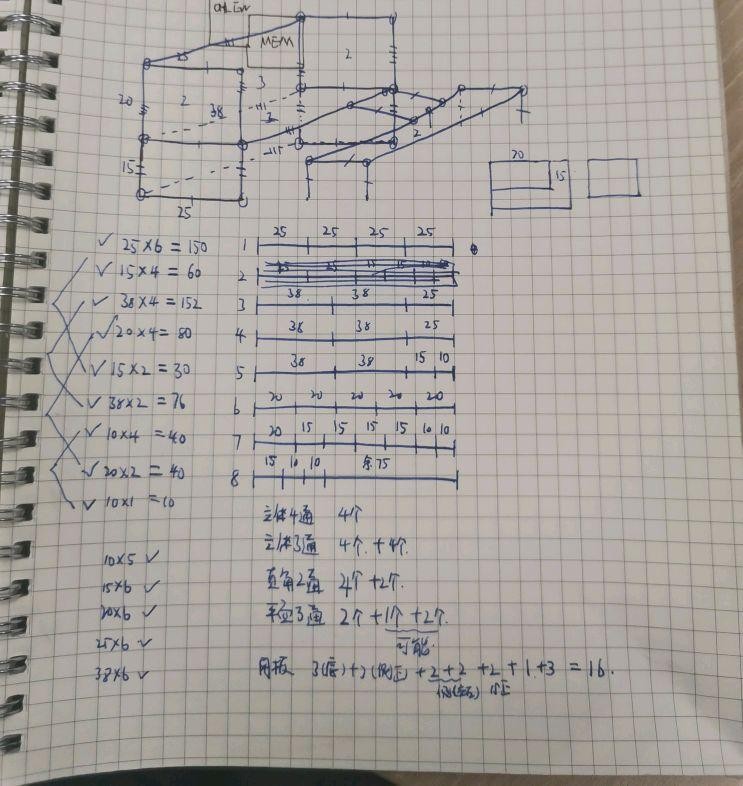 MEM
25
2
20
2
38
3
3
15
25
2
20
15
✓ 25×6=150
✓ 15×4=60
✓ 38×4=152
✓ 20×4=80
✓ 15×2=30
✓ 38×2=76
✓ 10×4=40
✓ 20×2=40
✓ 10×1=10
10×5 ✓
15×6 ✓
20×6 ✓
25×6 ✓
38×6 ✓
1 25 25 25 25
2
3 38 38 25
4 38 38 25
5 38 38 15 10
6 20 20 20 20 20
7 20 15 15 15 15 10 10
8 15 10 10 余75
立体4通 4个
立体3通 4个+4个
直角2通 4个+2个
平面3通 2个+1个+2个
可能
网板 3(底)+2(侧正)+2+2+2+1+3=16.